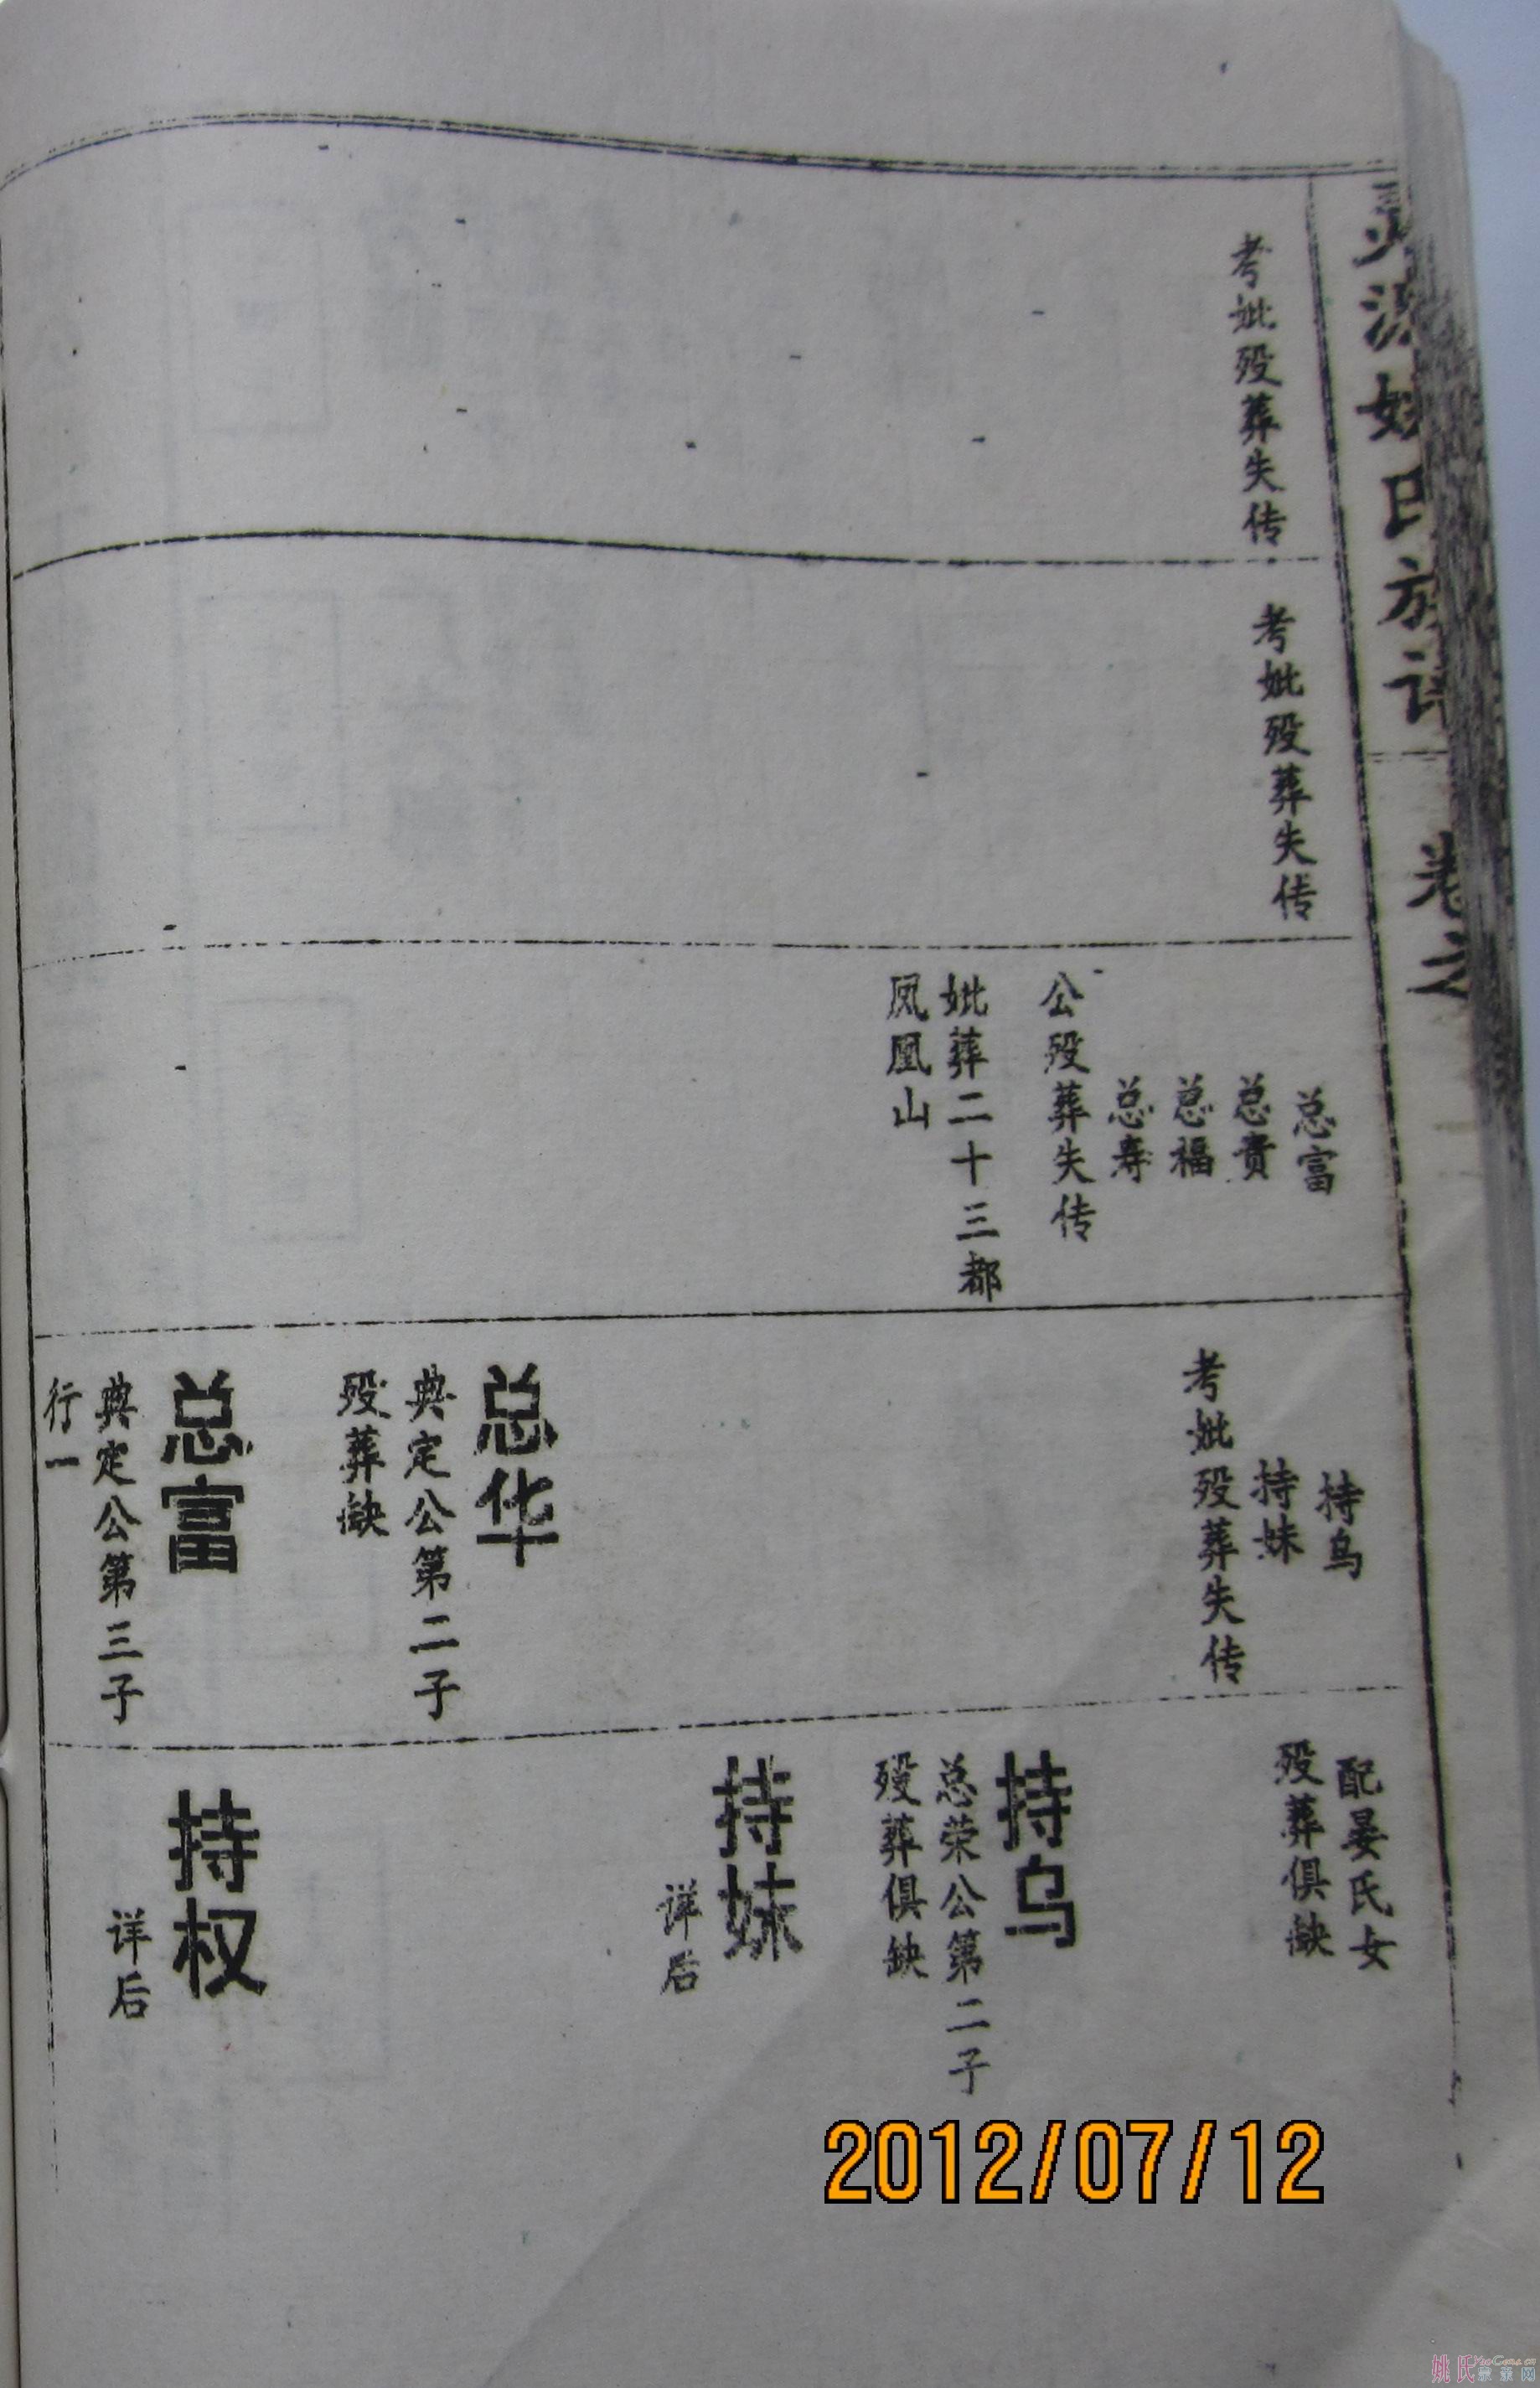 源姚氏族谱 卷之
考妣殁葬失传
考妣殁葬失传
总富
总贵
总福
总寿
公殁葬失传
妣葬二十三都
凤凰山
持乌
持妹
考妣殁葬失传
总华
典定公第二子
殁葬缺
总富
典定公第三子
行一
配晏氏女
殁葬俱缺
持乌
总荣公第二子
殁葬俱缺
持妹
详后
持权
详后
2012/07/12
姚氏